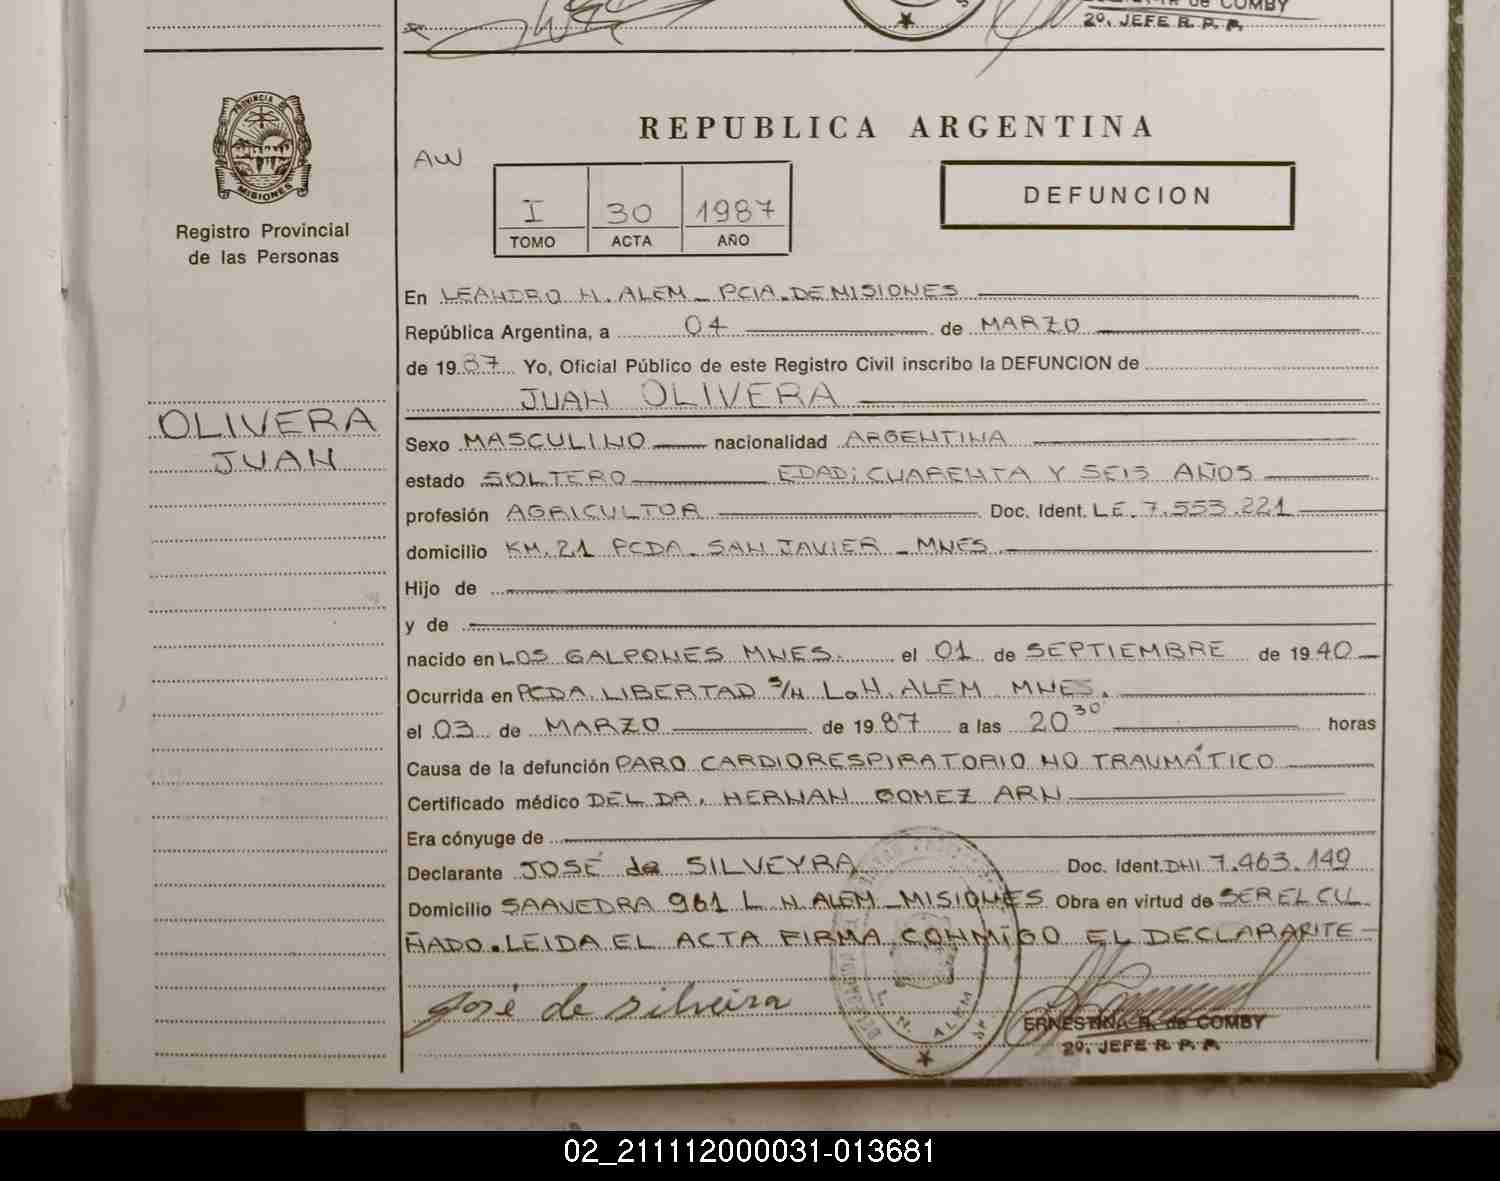 de COMBY
2º. JEFE R. P. P.
PROVINCIA DE
MISIONES
Registro Provincial
de las Personas
REPUBLICA ARGENTINA
AW
I 30 1987
TOMO ACTA AÑO
DEFUNCION
En LEANDRO N. ALEM - PCIA. DE MISIONES
República Argentina, a 04 de MARZO
de 1987 Yo, Oficial Público de este Registro Civil inscribo la DEFUNCION de
JUAN OLIVERA
OLIVERA
JUAN
Sexo MASCULINO nacionalidad ARGENTINA
estado SOLTERO EDAD: CUARENTA Y SEIS AÑOS
profesión AGRICULTOR Doc. Ident. L.E. 7.553.221
domicilio KM. 21 PCDA. SAN JAVIER - MNES
Hijo de
y de
nacido en LOS GALPONES MNES. el 01 de SEPTIEMBRE de 1940
Ocurrida en PCDA. LIBERTAD S/N L.N. ALEM MNES.
el 03 de MARZO de 1987 a las 20 30 horas
Causa de la defunción PARO CARDIORESPIRATORIO NO TRAUMÁTICO
Certificado médico DEL DR. HERNAN GOMEZ ARN
Era cónyuge de
Declarante JOSÉ de SILVEYRA Doc. Ident. DNI 7.463.149
Domicilio SAAVEDRA 961 L. N. ALEM - MISIONES Obra en virtud de SER EL CU
ÑADO. LEIDA EL ACTA FIRMA CONMIGO EL DECLARANTE -
José de silveira
L. N. ALEM
ERNESTINA R. de COMBY
2º. JEFE R. P. P.
02_211112000031-013681